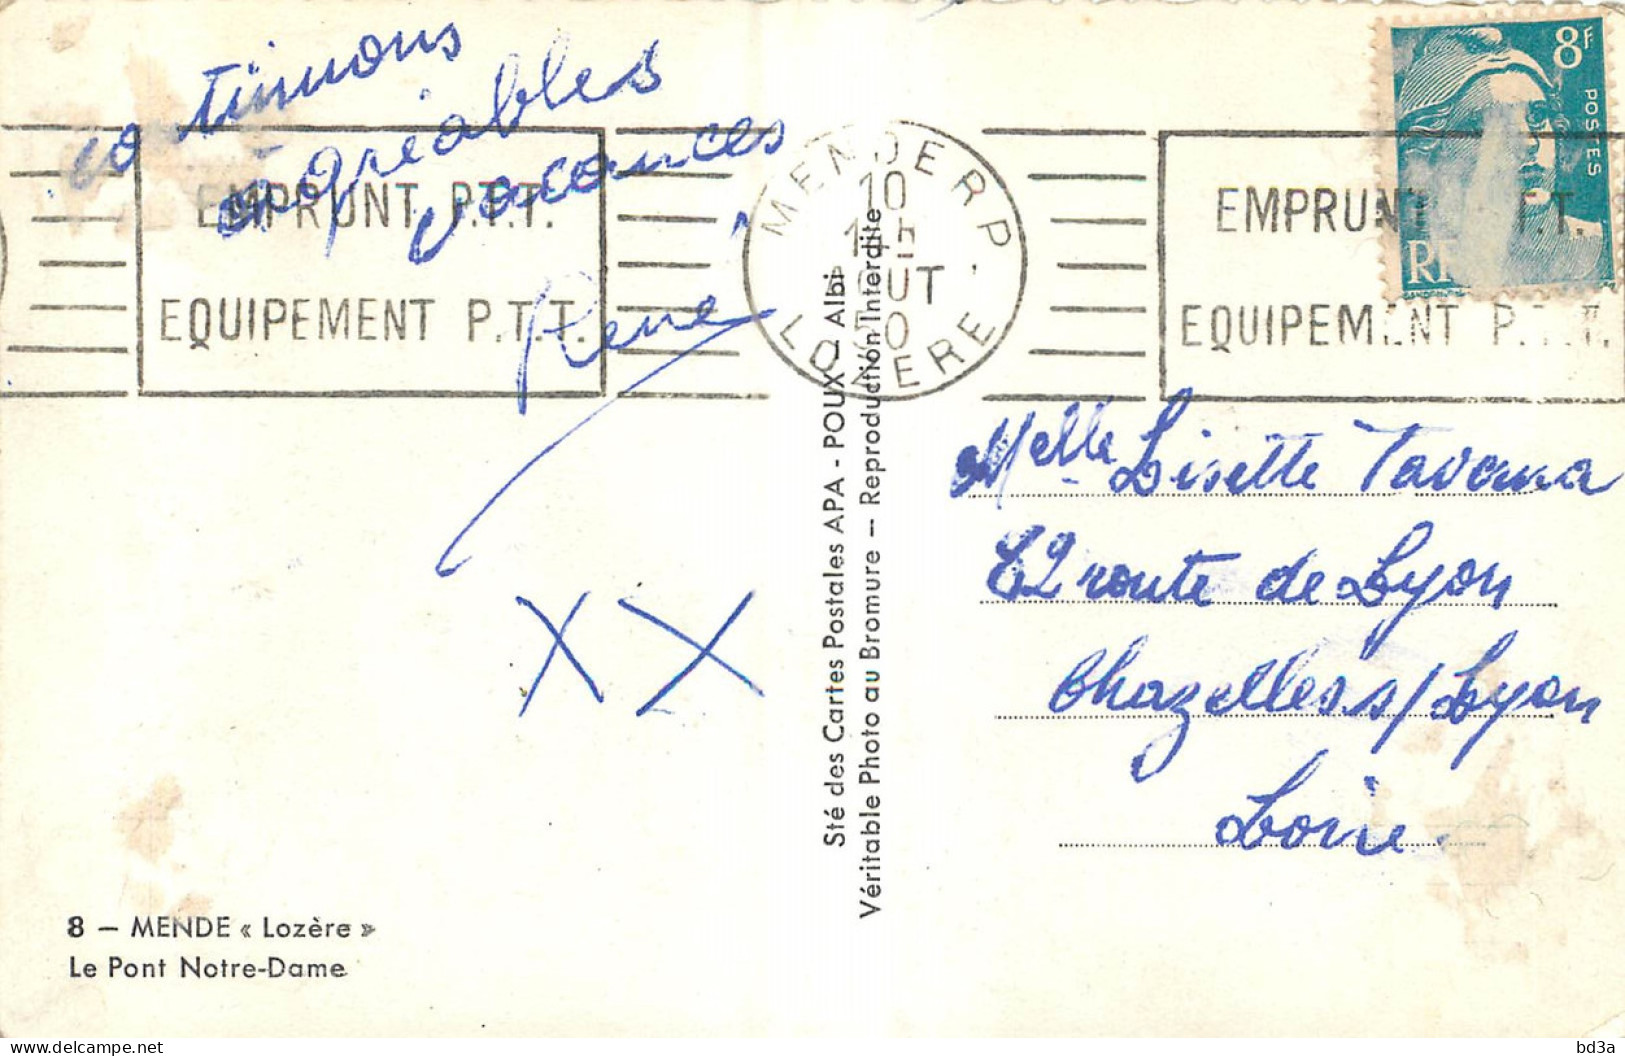 continuons
agréables
vacances
René
X X
EMPRUNT P.T.T.
EQUIPEMENT P.T.T.
MENDE R P
10
AOUT
LOZERE
EMPRUNT P.T.T.
EQUIPEMENT P.T.T.
8F
POSTES
RF
Melle Lisette Taverna
82 route de Lyon
Chazelles s/Lyon
Loire.
Sté des Cartes Postales APA - POUX - Albi
Véritable Photo au Bromure — Reproduction Interdite
8 — MENDE « Lozère »
Le Pont Notre-Dame
bd3a